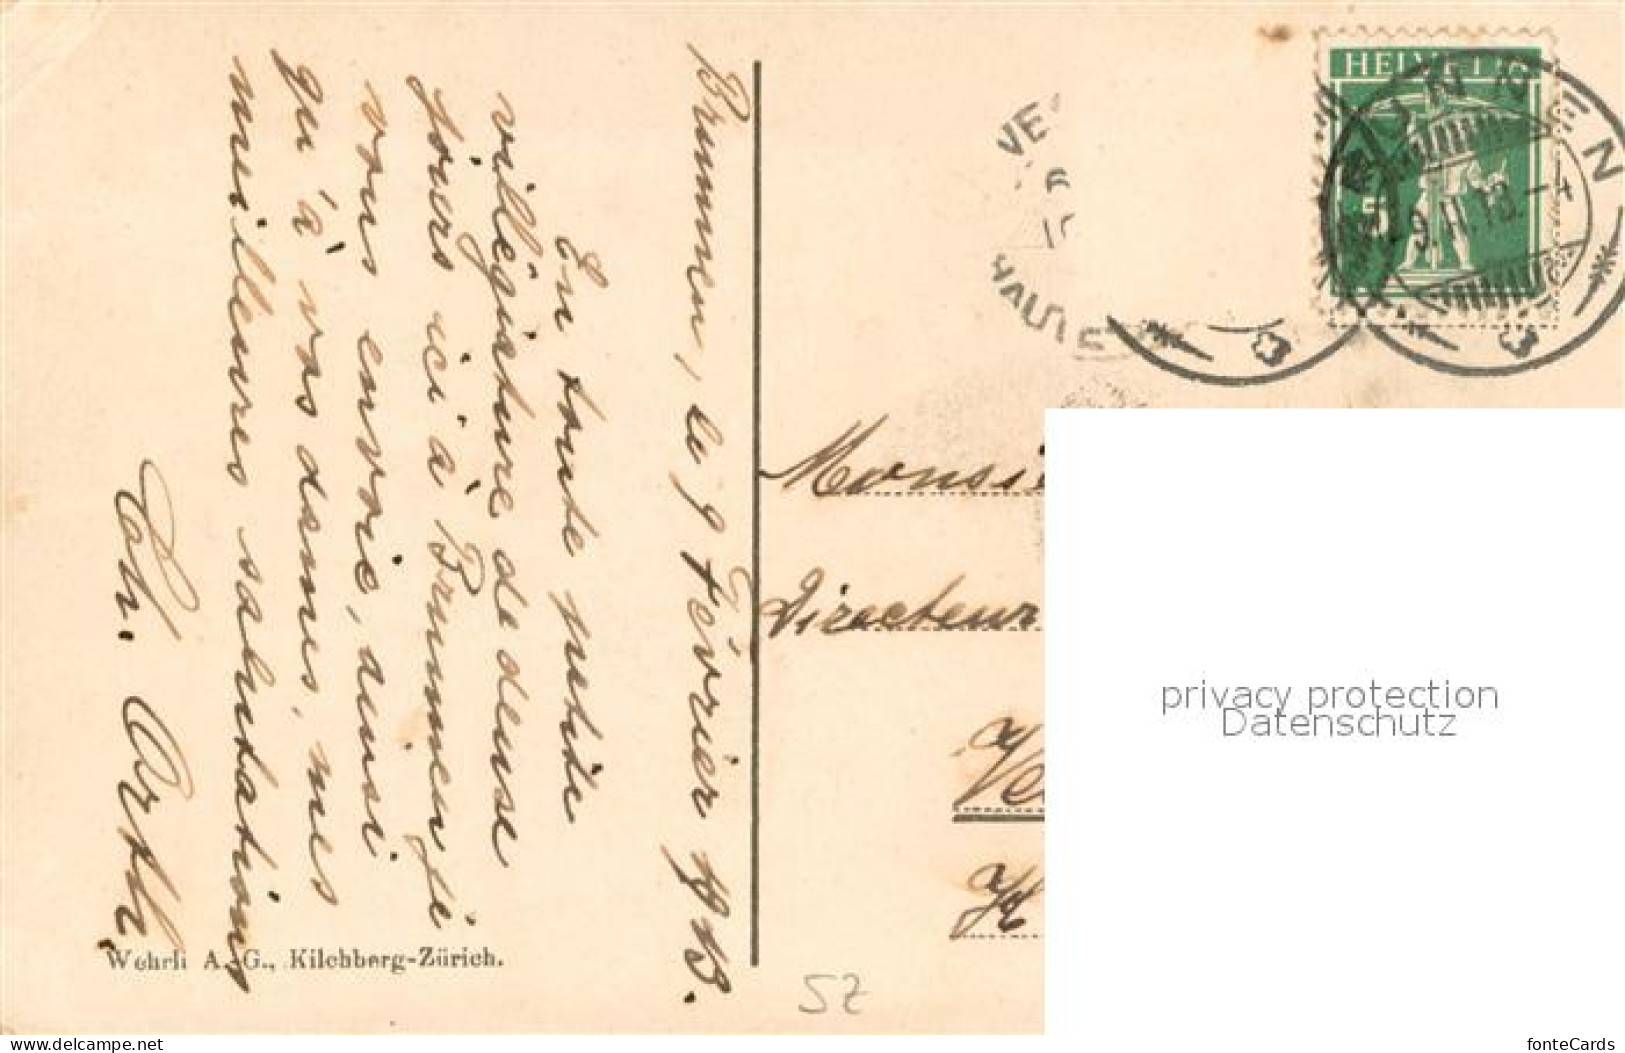 Brunnen, le 9 Février 1913.
En toute petite
villégiature de deuse
jours ici à Brunnen je
vous envoie, ainsi
qu'à vos dames, mes
meilleures salutations
Ch. Orth
Wehrli A.-G., Kilchberg-Zürich.
HELVETIA
5
BRUNNEN
9.II.13.-4
VE
10
HAUTE
Monsi
Directeur
Ve
H
SZ
privacy protection
Datenschutz
www.delcampe.net
fonteCards